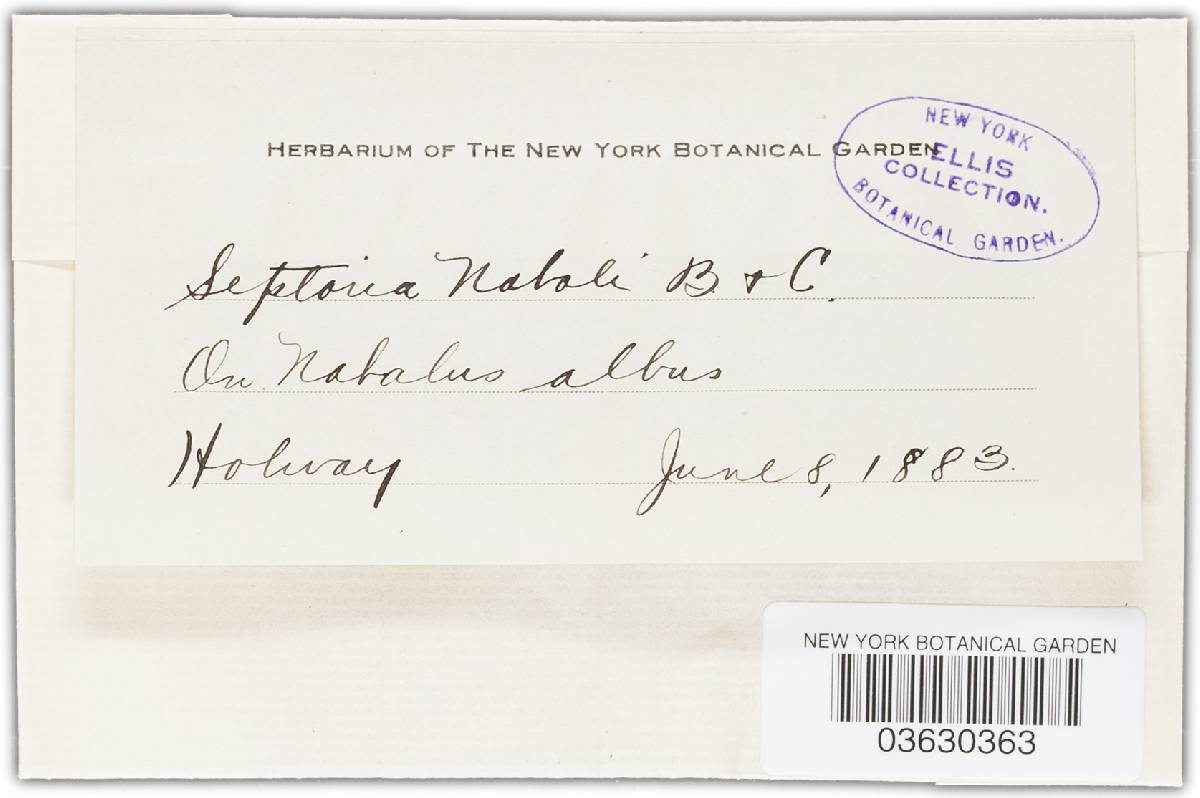 HERBARIUM OF THE NEW YORK BOTANICAL GARDEN
NEW YORK
ELLIS
COLLECTION.
BOTANICAL GARDEN.
Septoria Nabali B. & C.
On Nabalus albus
Holway June 8, 1883.
NEW YORK BOTANICAL GARDEN
03630363